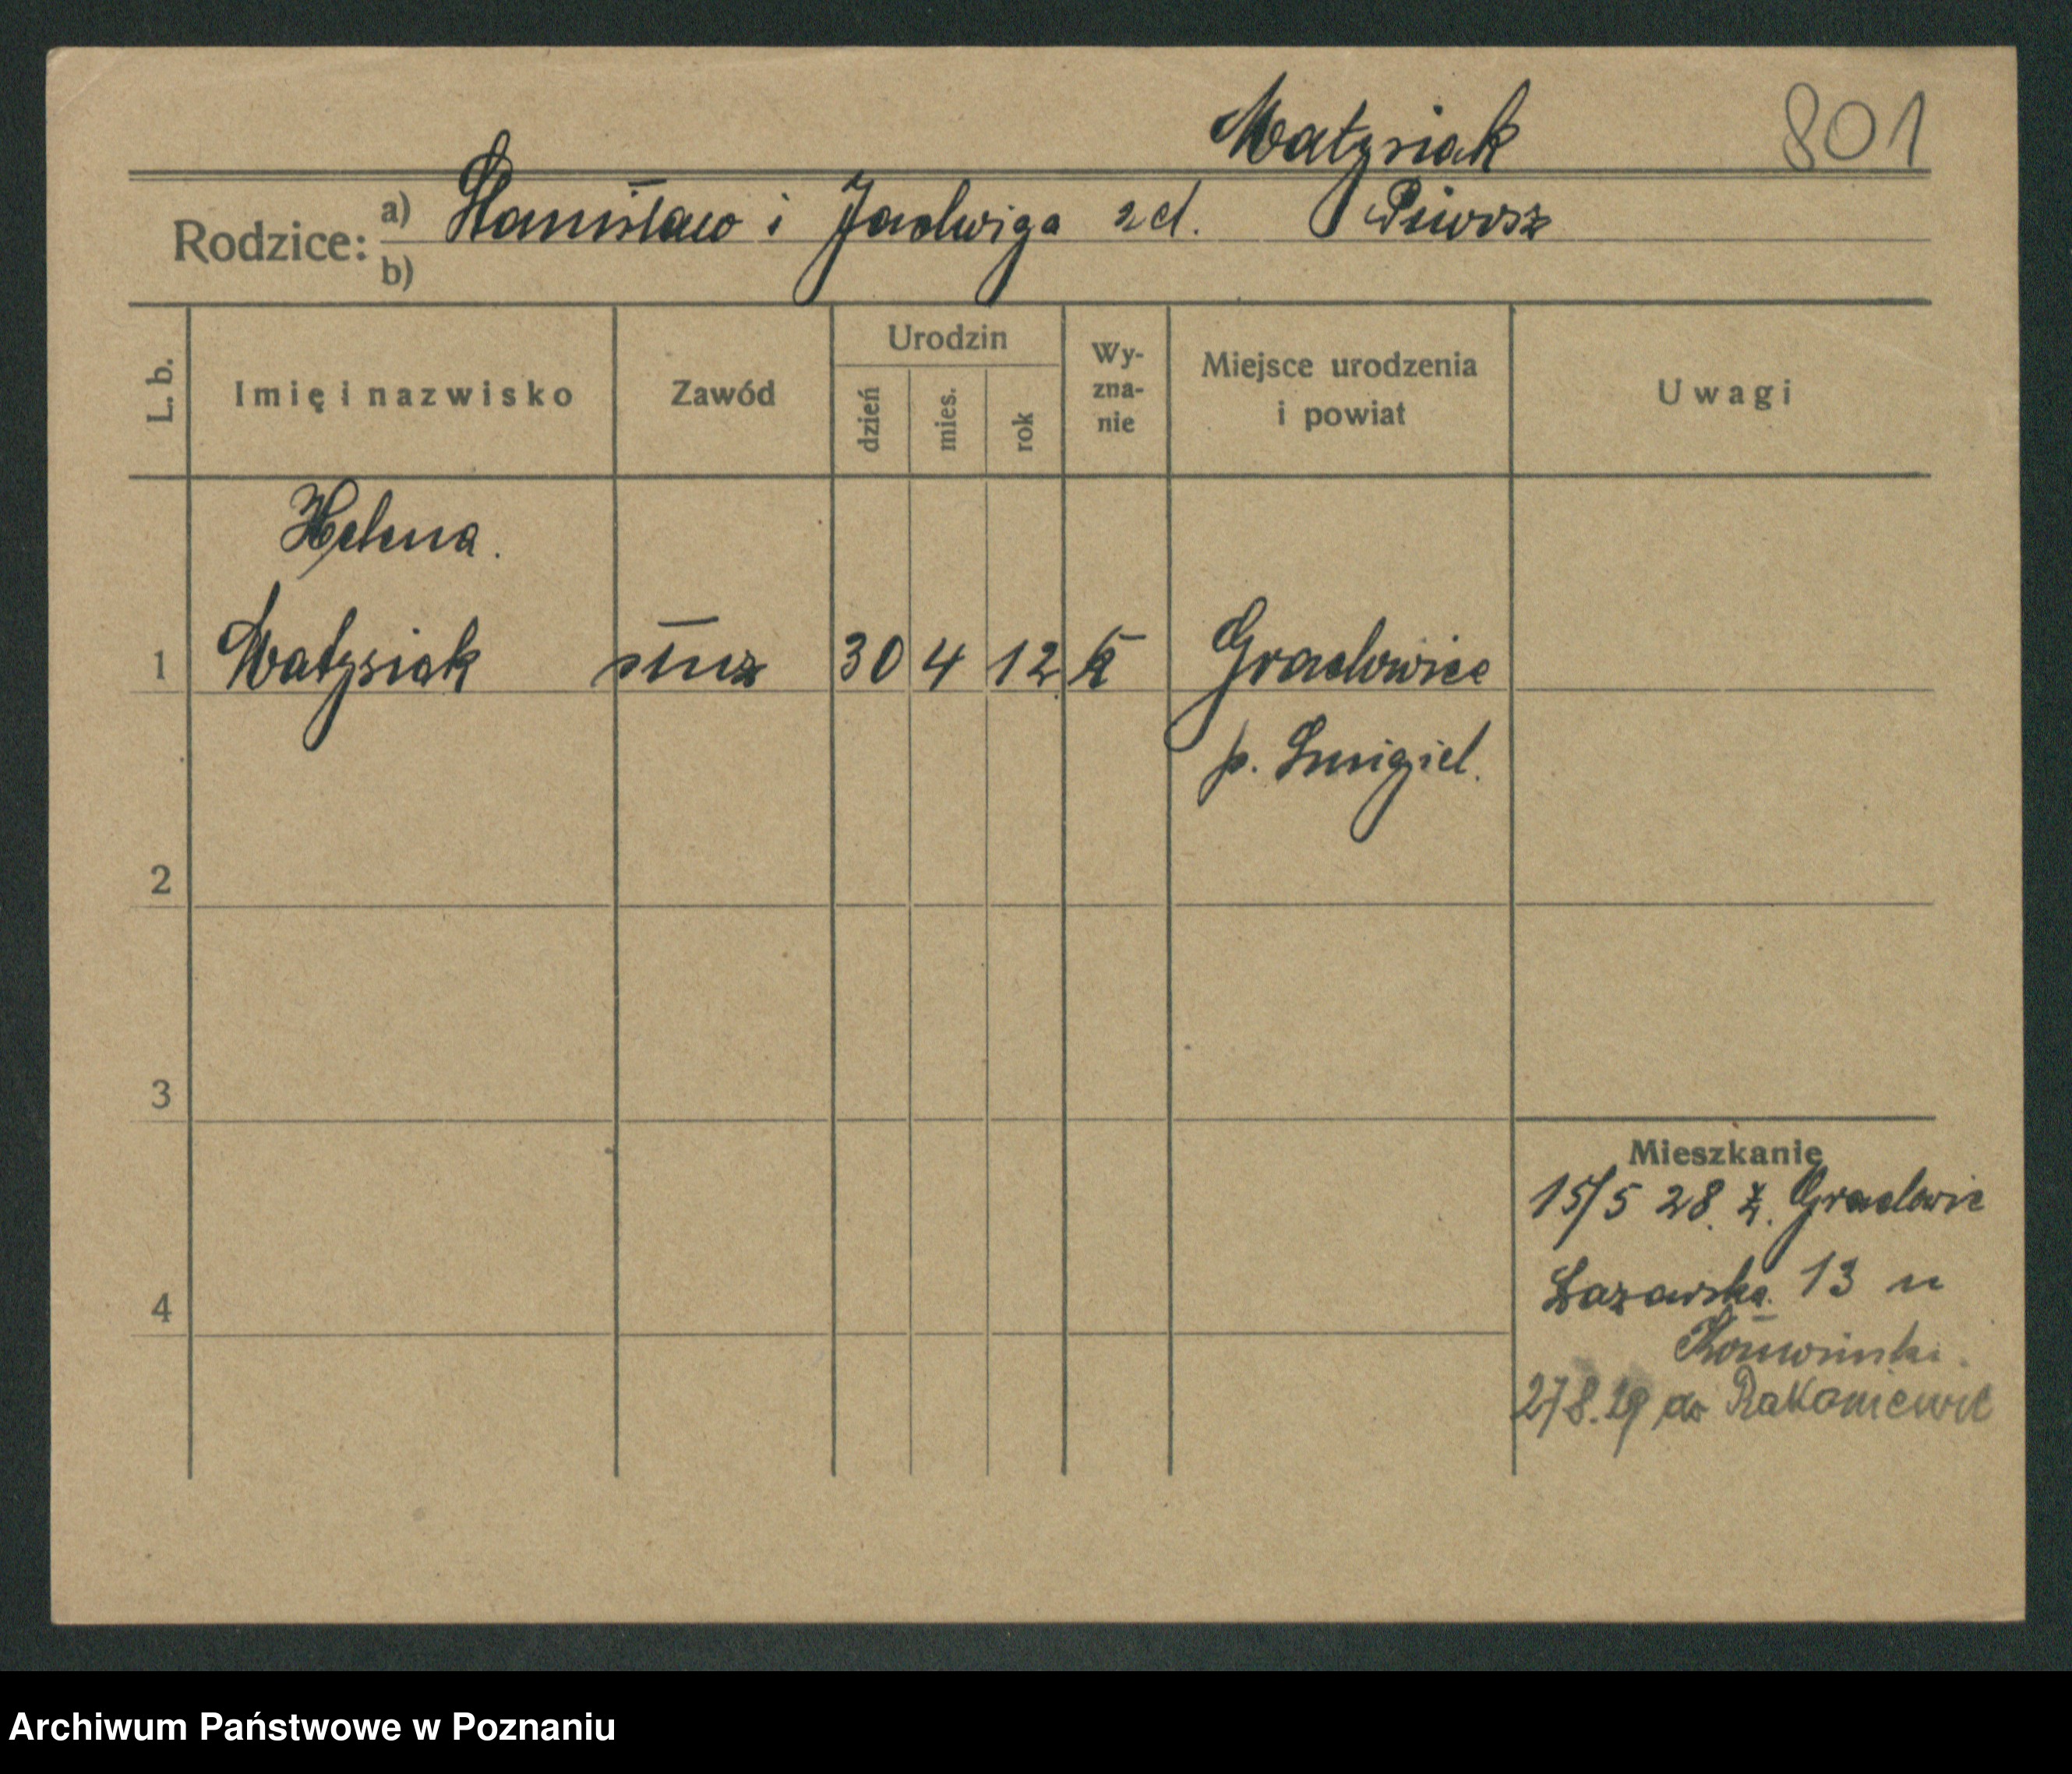 Matysiak 801
Rodzice: a) Stanisław i Jadwiga zd. Piwosz
b)
L. b. Imię i nazwisko Zawód Urodzin dzień mies. rok Wyznanie Miejsce urodzenia i powiat Uwagi
Helena.
1 Matysiak służ 30 4 12 k Gradowice
p. Śmigiel.
2
3
Mieszkanie
15/5 28. z. Gradowic
4 Łazarska 13 u
27 8. 29 do Rakoniewic
Archiwum Państwowe w Poznaniu